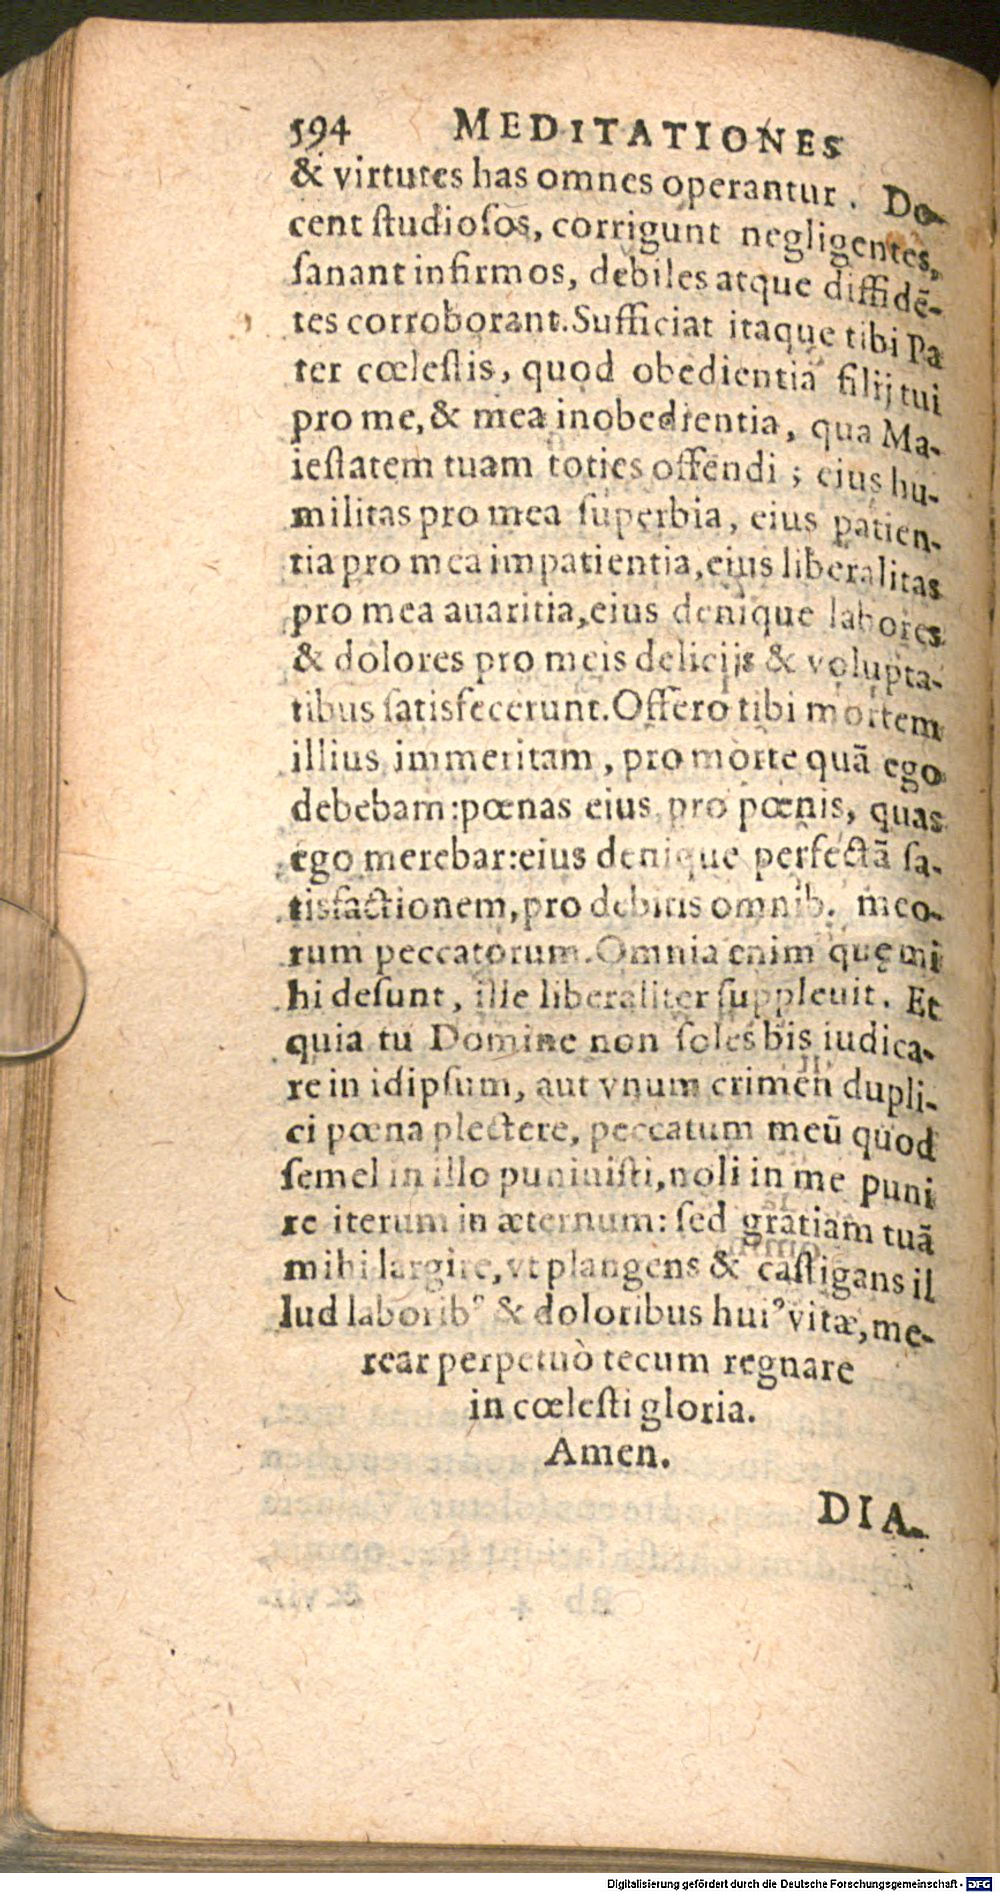 594 MEDITATIONES
& virtutes has omnes operantur. Do-
cent ſtudioſos, corrigunt negligentes,
ſanant infirmos, debiles atque diffidē-
tes corroborant. Sufficiat itaque tibi Pa
ter cœleſtis, quod obedientia filij tui
pro me, & mea inobedientia, qua Ma-
ieſtatem tuam toties offendi; eius hu-
militas pro mea ſuperbia, eius patien-
tia pro mea impatientia, eius liberalitas
pro mea auaritia, eius denique labores
& dolores pro meis delicijs & volupta-
tibus ſatisfecerunt. Offero tibi mortem
illius immeritam, pro morte quā ego
debebam: pœnas eius pro pœnis, quas
ego merebar: eius denique perfectā ſa-
tisfactionem, pro debitis omnib. meo-
rum peccatorum. Omnia enim quę mi
hi deſunt, ille liberaliter ſuppleuit. Et
quia tu Domine non ſoles bis iudica-
re in idipſum, aut vnum crimen dupli-
ci pœna plectere, peccatum meū quod
ſemel in illo puniuiſti, noli in me puni
re iterum in æternum: ſed gratiam tuā
mihi largire, vt plangens & caſtigans il
lud laborib⁹ & doloribus hui⁹ vitæ, me-
rear perpetuò tecum regnare
in cœleſti gloria.
Amen.
DIA-
Digitalisierung gefördert durch die Deutsche Forschungsgemeinschaft - DFG